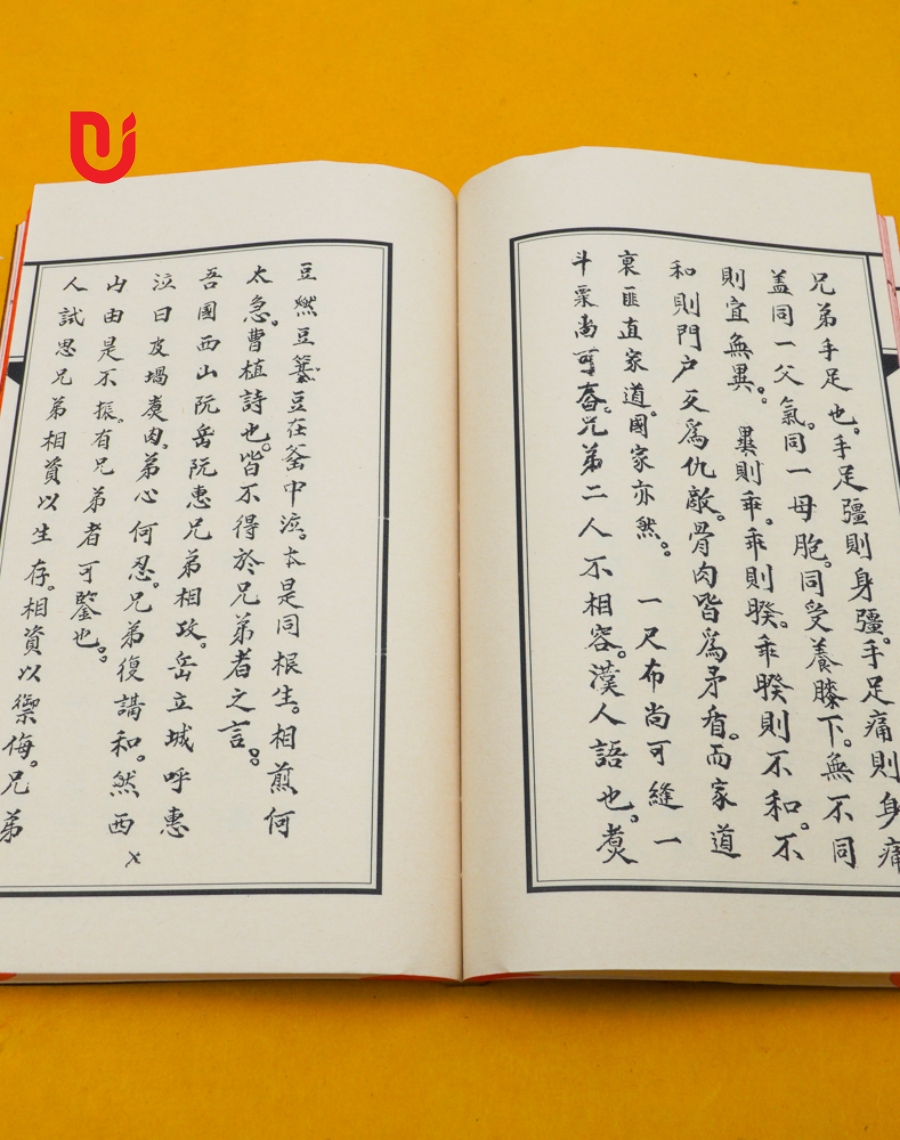 兄弟手足也。手足彊則身彊。手足痛則身痛
盖同一父氣。同一母胞。同受養膝下。無不同
則宜無異。異則乖。乖則睽。乖睽則不和。不
和則門户反爲仇敵。骨肉皆爲矛盾。而家道
衰匪直家道。國家亦然。一尺布尚可縫一
斗粟尚可舂。兄弟二人不相容。漢人語也。煑
豆燃豆萁豆在釜中泣。本是同根生。相煎何
太急。曹植詩也。皆不得於兄弟者之言。
吾國西山阮岳阮惠兄弟相攻。岳立城呼惠
泣曰皮堝煑肉。弟心何忍。兄弟復講和。然西
山由是不振。有兄弟者可鑒也。
人試思兄弟相資以生存。相資以禦侮。兄弟